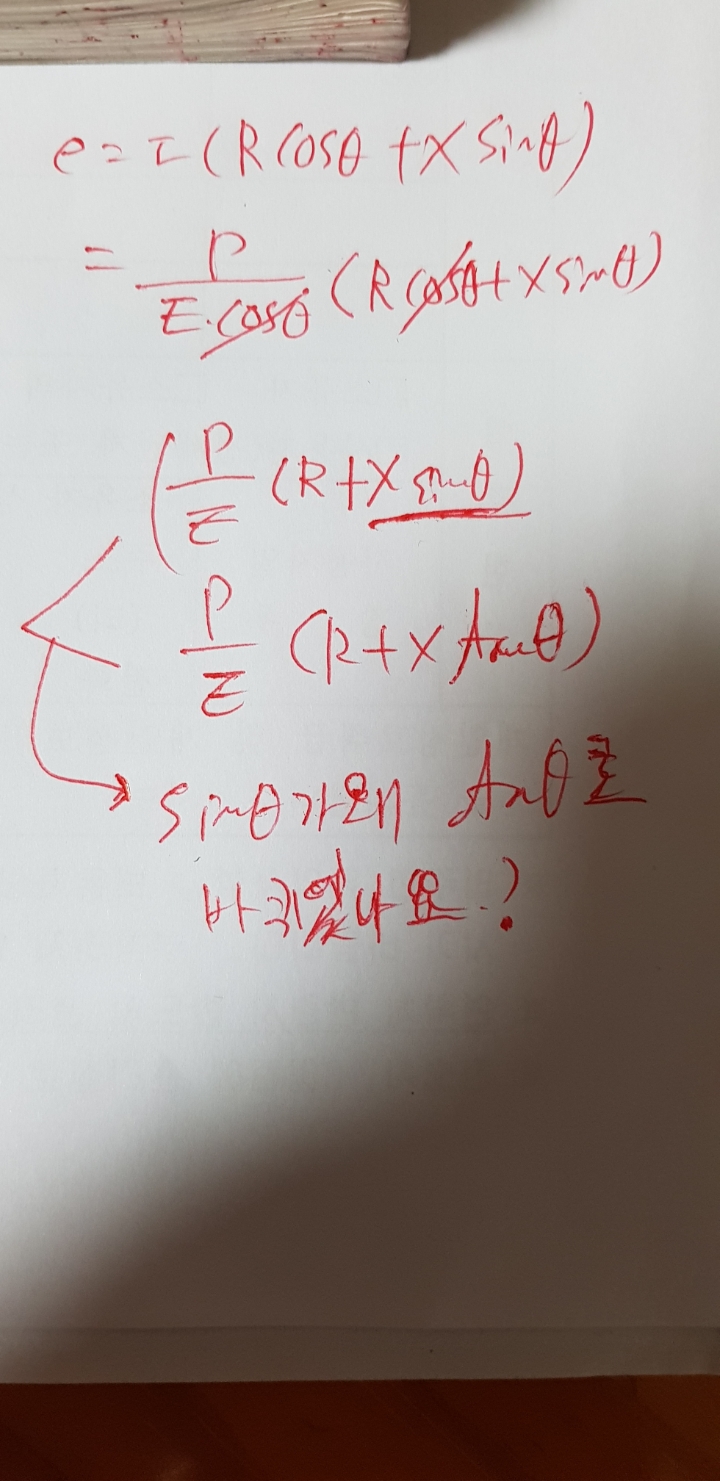 e = I (R cosθ + X sinθ)
= P / E·cosθ (R cosθ + X sinθ)
( P / E (R + X sinθ)
P / E (R + X tanθ)
sinθ가 왜 tanθ로
바뀌었나요.?